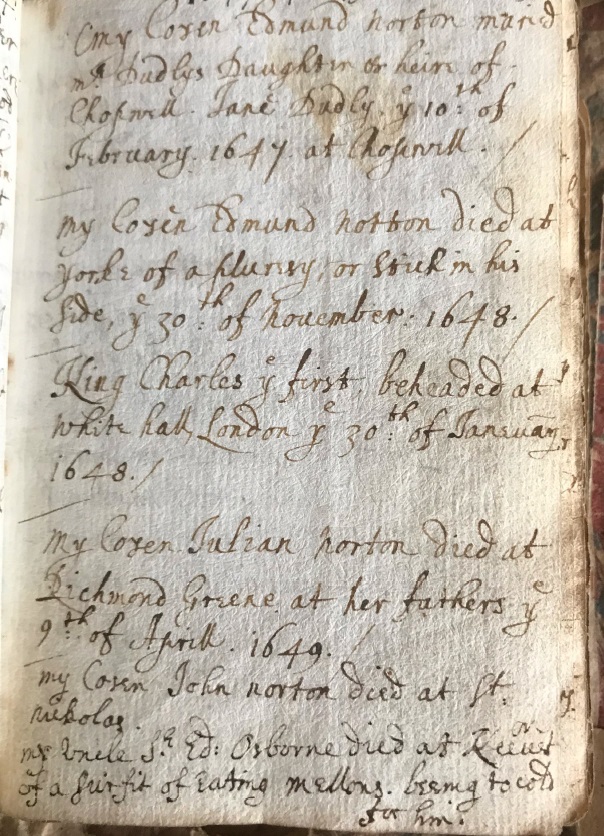 my Cosen Edmund norton maried
mr Dudlys Daughter & heire of
Chopwell. Jane Dudly. ye 10:th of
February. 1647. at Chopwell. /
my Cosen Edmund norton died at
yorke of a plurisy, or stich in his
side, ye 30:th of november: 1648. /
King Charles ye first, beheaded at
white hall, London ye 30:th of Januuary
1648. /
my Cosen Julian norton died at
Richmond Greene at her fathers ye
9th of Aprill. 1649. /
my Cosen John norton died at St.
nickolas.
my Uncle Sr Ed: Osborne died at
of a surfit of Eating mellons. being to cold
for him.